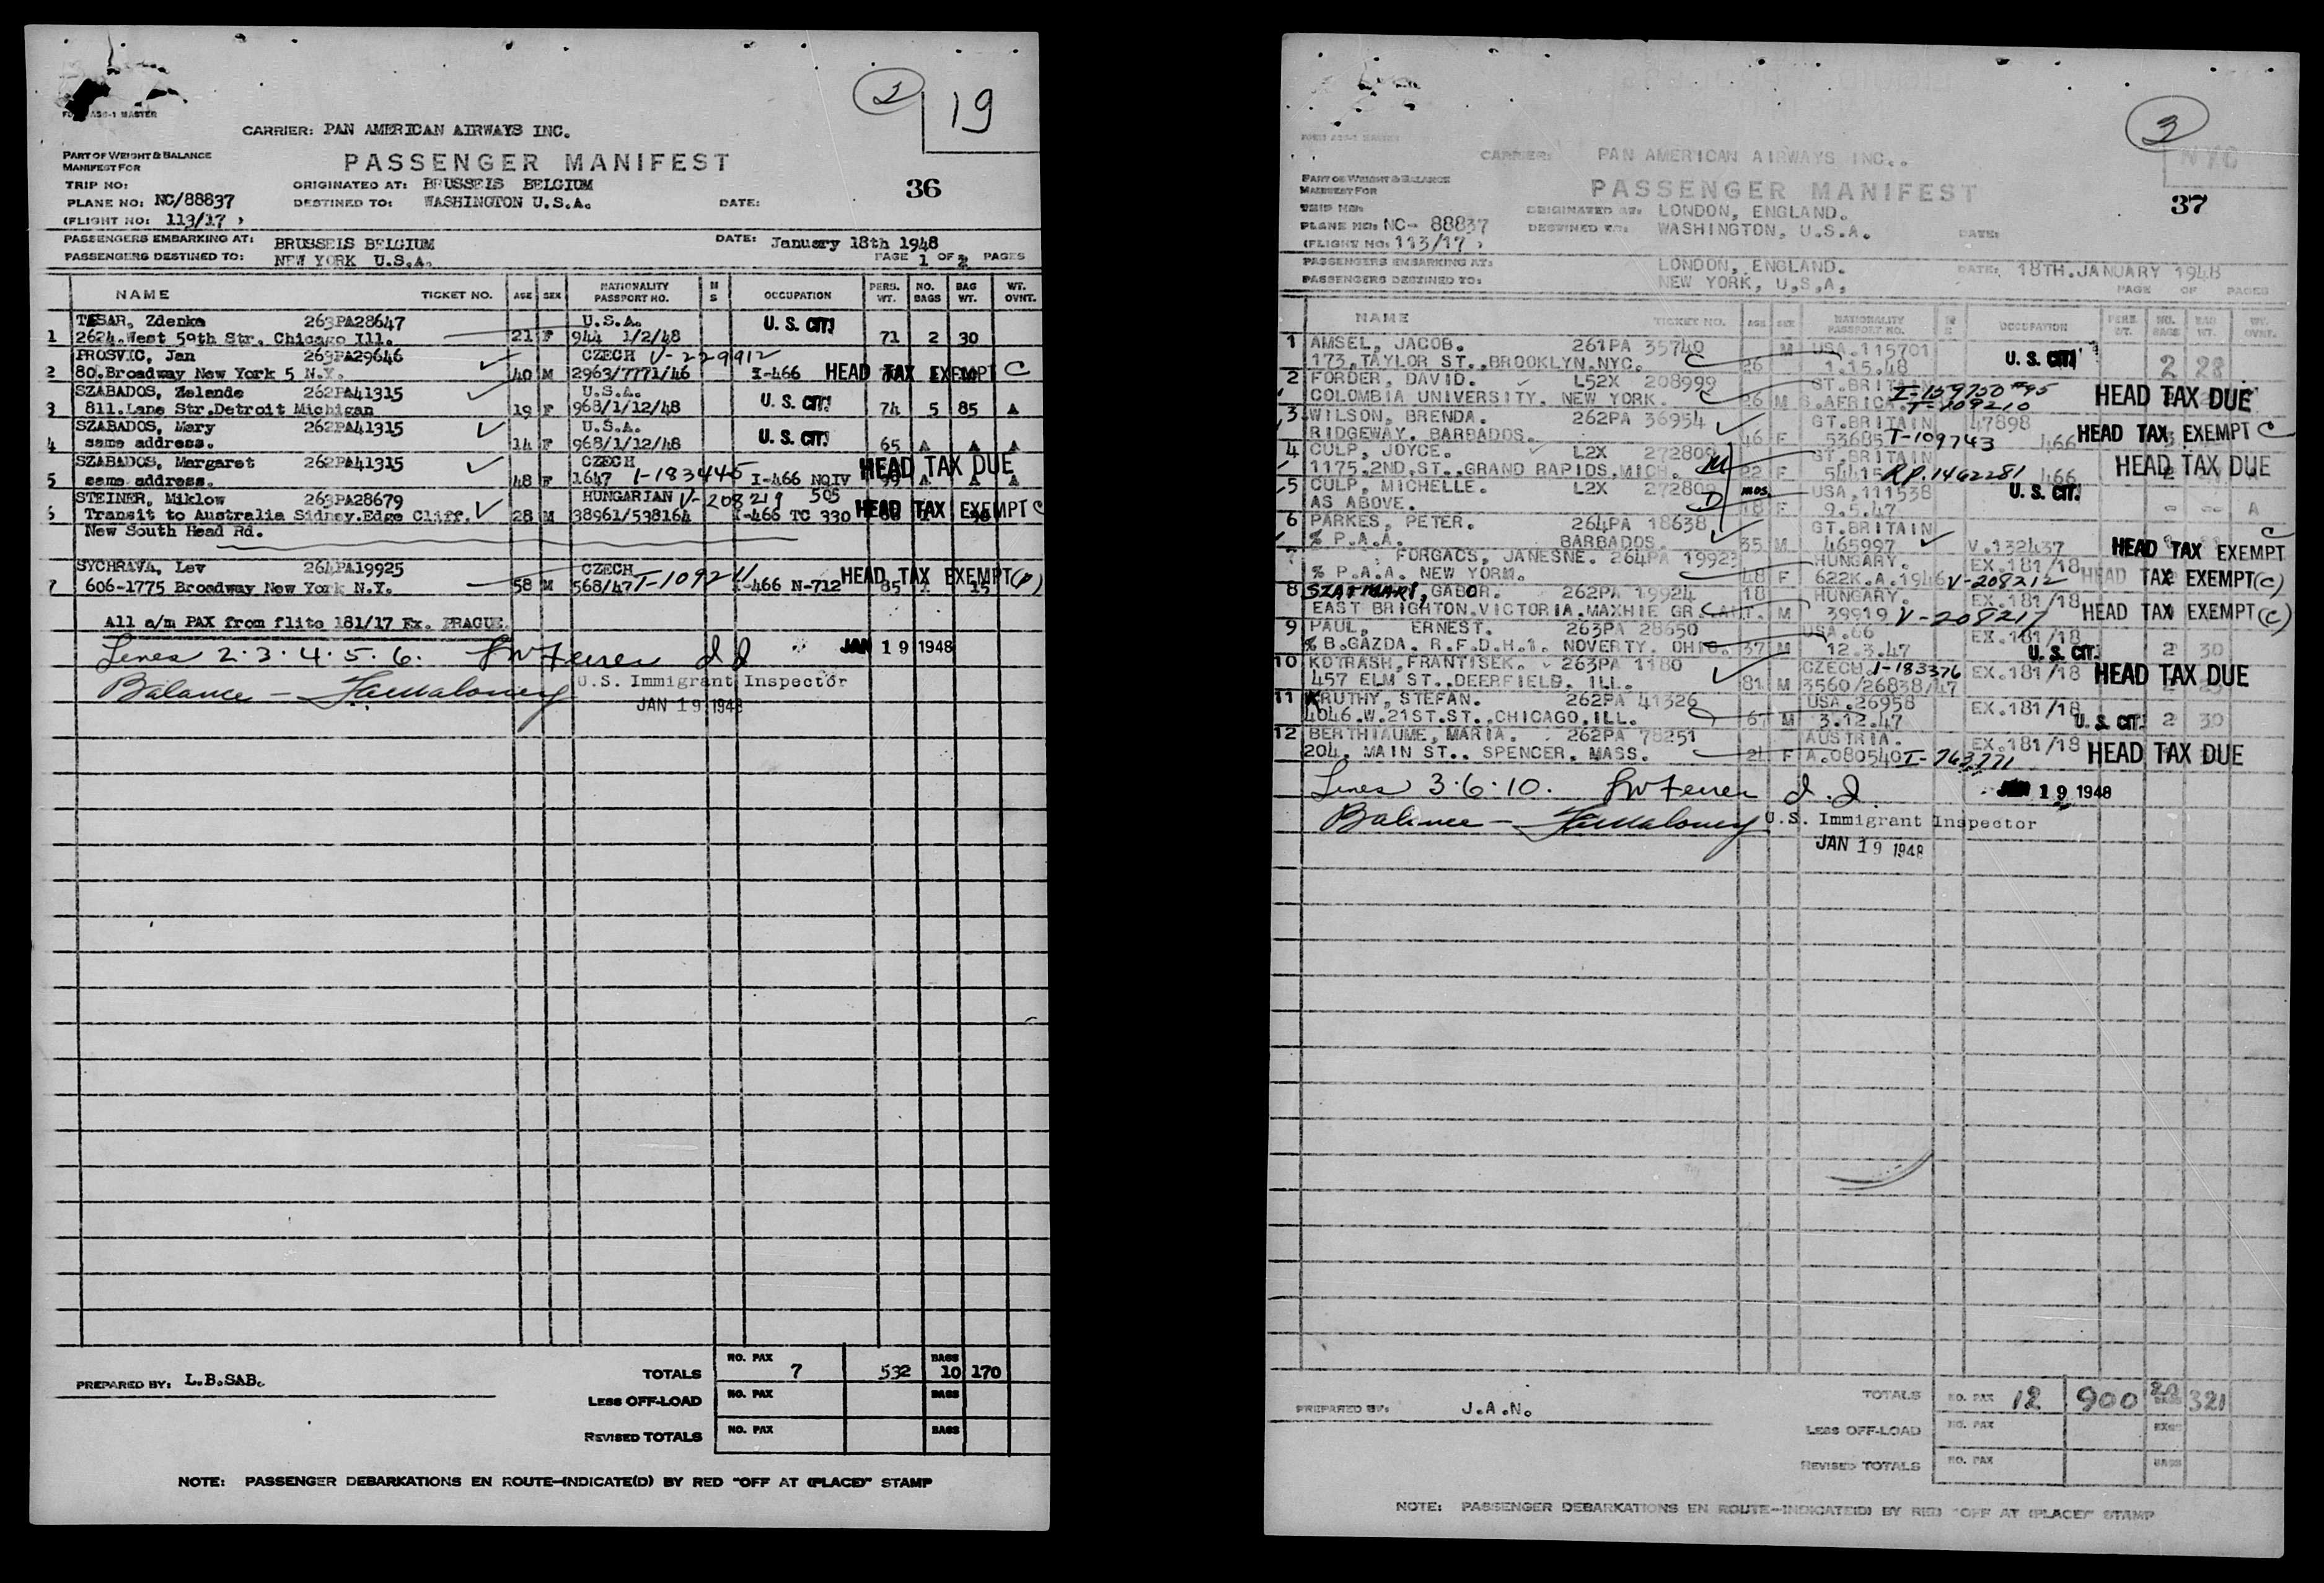 2
19
FORM ASS-1 MASTER
CARRIER: PAN AMERICAN AIRWAYS INC.
PART OF WEIGHT & BALANCE
MANIFEST FOR
PASSENGER MANIFEST
36
TRIP NO:
ORIGINATED AT: BRUSSELS BELGIUM
PLANE NO: NC/88837
DESTINED TO: WASHINGTON U.S.A.
DATE:
(FLIGHT NO: 113/17 )
PASSENGERS EMBARKING AT: BRUSSELS BELGIUM
DATE: January 18th 1948
PASSENGERS DESTINED TO: NEW YORK U.S.A.
PAGE 1 OF 2 PAGES
NAME TICKET NO. AGE SEX NATIONALITY PASSPORT NO. M S OCCUPATION PERS. WT. NO. BAGS BAG WT. WT. OVNT.
TESAR, Zdenka 263PA28647 U.S.A. U. S. CIT.
1 2624.West 59th Str. Chicago Ill. 21 F 944 1/2/48 71 2 30
PROSVIC, Jan 263PA29646 CZECH V-229912
2 80.Broadway New York 5 N.Y. 40 M 2963/7771/46 I-466 HEAD TAX EXEMPT C
SZABADOS, Zelande 262PA41315 U.S.A.
3 811.Lane Str.Detroit Michigan 19 F 968/1/12/48 U. S. CIT. 74 5 85 A
SZABADOS, Mary 262PA41315 U.S.A.
4 same address. 14 F 968/1/12/48 U. S. CIT. 65 A A A
SZABADOS, Margaret 262PA41315 CZECH
5 same address. 48 F 1647 I-183445 I-466 NQIV HEAD TAX DUE 99 A A A
STEINER, Miklow 263PA28679 HUNGARIAN V-208219 505
6 Transit to Australia Sidney.Edge Cliff. 28 M 38961/538164 I-466 TC 330 HEAD TAX EXEMPT C
New South Head Rd.
SYCHRAVA, Lev 264PA19925 CZECH
7 606-1775 Broadway New York N.Y. 58 M 568/47 T-109211 I-466 N-712 HEAD TAX EXEMPT(P) 85 15
All a/m PAX from flite 181/17 Ex. PRAGUE.
Lines 2.3.4.5.6. JAN 19 1948
Balance —
U.S. Immigrant Inspector
JAN 19 1948
PREPARED BY: L.B.SAB.
TOTALS NO. PAX 7 532 BAGS 10 170
LESS OFF-LOAD NO. PAX BAGS
REVISED TOTALS NO. PAX BAGS
NOTE: PASSENGER DEBARKATIONS EN ROUTE—INDICATE(D) BY RED "OFF AT (PLACE)" STAMP
3
NYC
CARRIER: PAN AMERICAN AIRWAYS INC..
PART OF WEIGHT & BALANCE
MANIFEST FOR
PASSENGER MANIFEST
37
TRIP NO:
ORIGINATED AT: LONDON, ENGLAND.
PLANE NO: NC- 88837
DESTINED TO: WASHINGTON, U.S.A.
DATE:
(FLIGHT NO: 113/17 )
PASSENGERS EMBARKING AT: LONDON, ENGLAND.
DATE: 18TH.JANUARY 1948
PASSENGERS DESTINED TO: NEW YORK, U.S.A.
PAGE OF PAGES
NAME TICKET NO. AGE SEX NATIONALITY PASSPORT NO. M S OCCUPATION PERS. WT. NO. BAGS BAG WT. WT. OVNT.
1 AMSEL, JACOB. 261PA 35740 M USA.115701 U. S. CIT.
173,TAYLOR ST.,BROOKLYN.NYC. 26 1.15.48 2 28
2 FORDER, DAVID. L52X 208999 GT.BRITAIN I-159750 #95
COLOMBIA UNIVERSITY. NEW YORK. 26 M S.AFRICA. T-109210 HEAD TAX DUE
3 WILSON, BRENDA. 262PA 36954 GT.BRITAIN 47898
RIDGEWAY. BARBADOS. 46 F 53685 T-109743 466 HEAD TAX EXEMPT C
4 CULP, JOYCE. L2X 272809 GT.BRITAIN
1175,2ND,ST.,GRAND RAPIDS,MICH. M 22 F 54415 R.P.1462281 466 HEAD TAX DUE
5 CULP, MICHELLE. L2X 272809 mos. USA.111538 U. S. CIT.
AS ABOVE. D 18 F 9.5.47 A
6 PARKES, PETER. 264PA 18638 GT.BRITAIN
% P.A.A. BARBADOS. 35 M 465997 V.132437 HEAD TAX EXEMPT C
FORGACS, JANESNE. 264PA 19923 HUNGARY. EX.181/18
% P.A.A. NEW YORK. 48 F 622K.A.1946 V-208212 HEAD TAX EXEMPT(C)
8 SZATHMARY, GABOR. 262PA 19924 18 HUNGARY. EX.181/18
EAST BRIGHTON.VICTORIA.MAXHIE GR M 39919 V-208217 HEAD TAX EXEMPT(C)
9 PAUL, ERNEST. 263PA 28650 USA.66 EX.181/18
% B.GAZDA. R.F.D.H.1. NOVERTY. OHIO. 37 M 12.3.47 U. S. CIT. 2 30
10 KOTRASH,FRANTISEK. 263PA 1180 CZECH. I-183376
457 ELM ST.,DEERFIELD. ILL. 81 M 3560/26838/47 EX.181/18 HEAD TAX DUE
11 KRUTHY, STEFAN. 262PA 41326 USA.26958
4046.W.21ST.ST.,CHICAGO,ILL. 67 M 3.12.47 EX.181/18 U. S. CIT. 2 30
12 BERTHIAUME, MARIA. 262PA 78251 AUSTRIA.
204, MAIN ST., SPENCER, MASS. 24 F A.080540 I-763771 EX.181/18 HEAD TAX DUE
Lines 3.6.10. JAN 19 1948
Balance —
U.S. Immigrant Inspector
JAN 19 1948
PREPARED BY: J.A.N.
TOTALS NO. PAX 12 900 BAGS 321
LESS OFF-LOAD NO. PAX
REVISED TOTALS NO. PAX BAGS
NOTE: PASSENGER DEBARKATIONS EN ROUTE—INDICATE(D) BY RED "OFF AT (PLACE)" STAMP